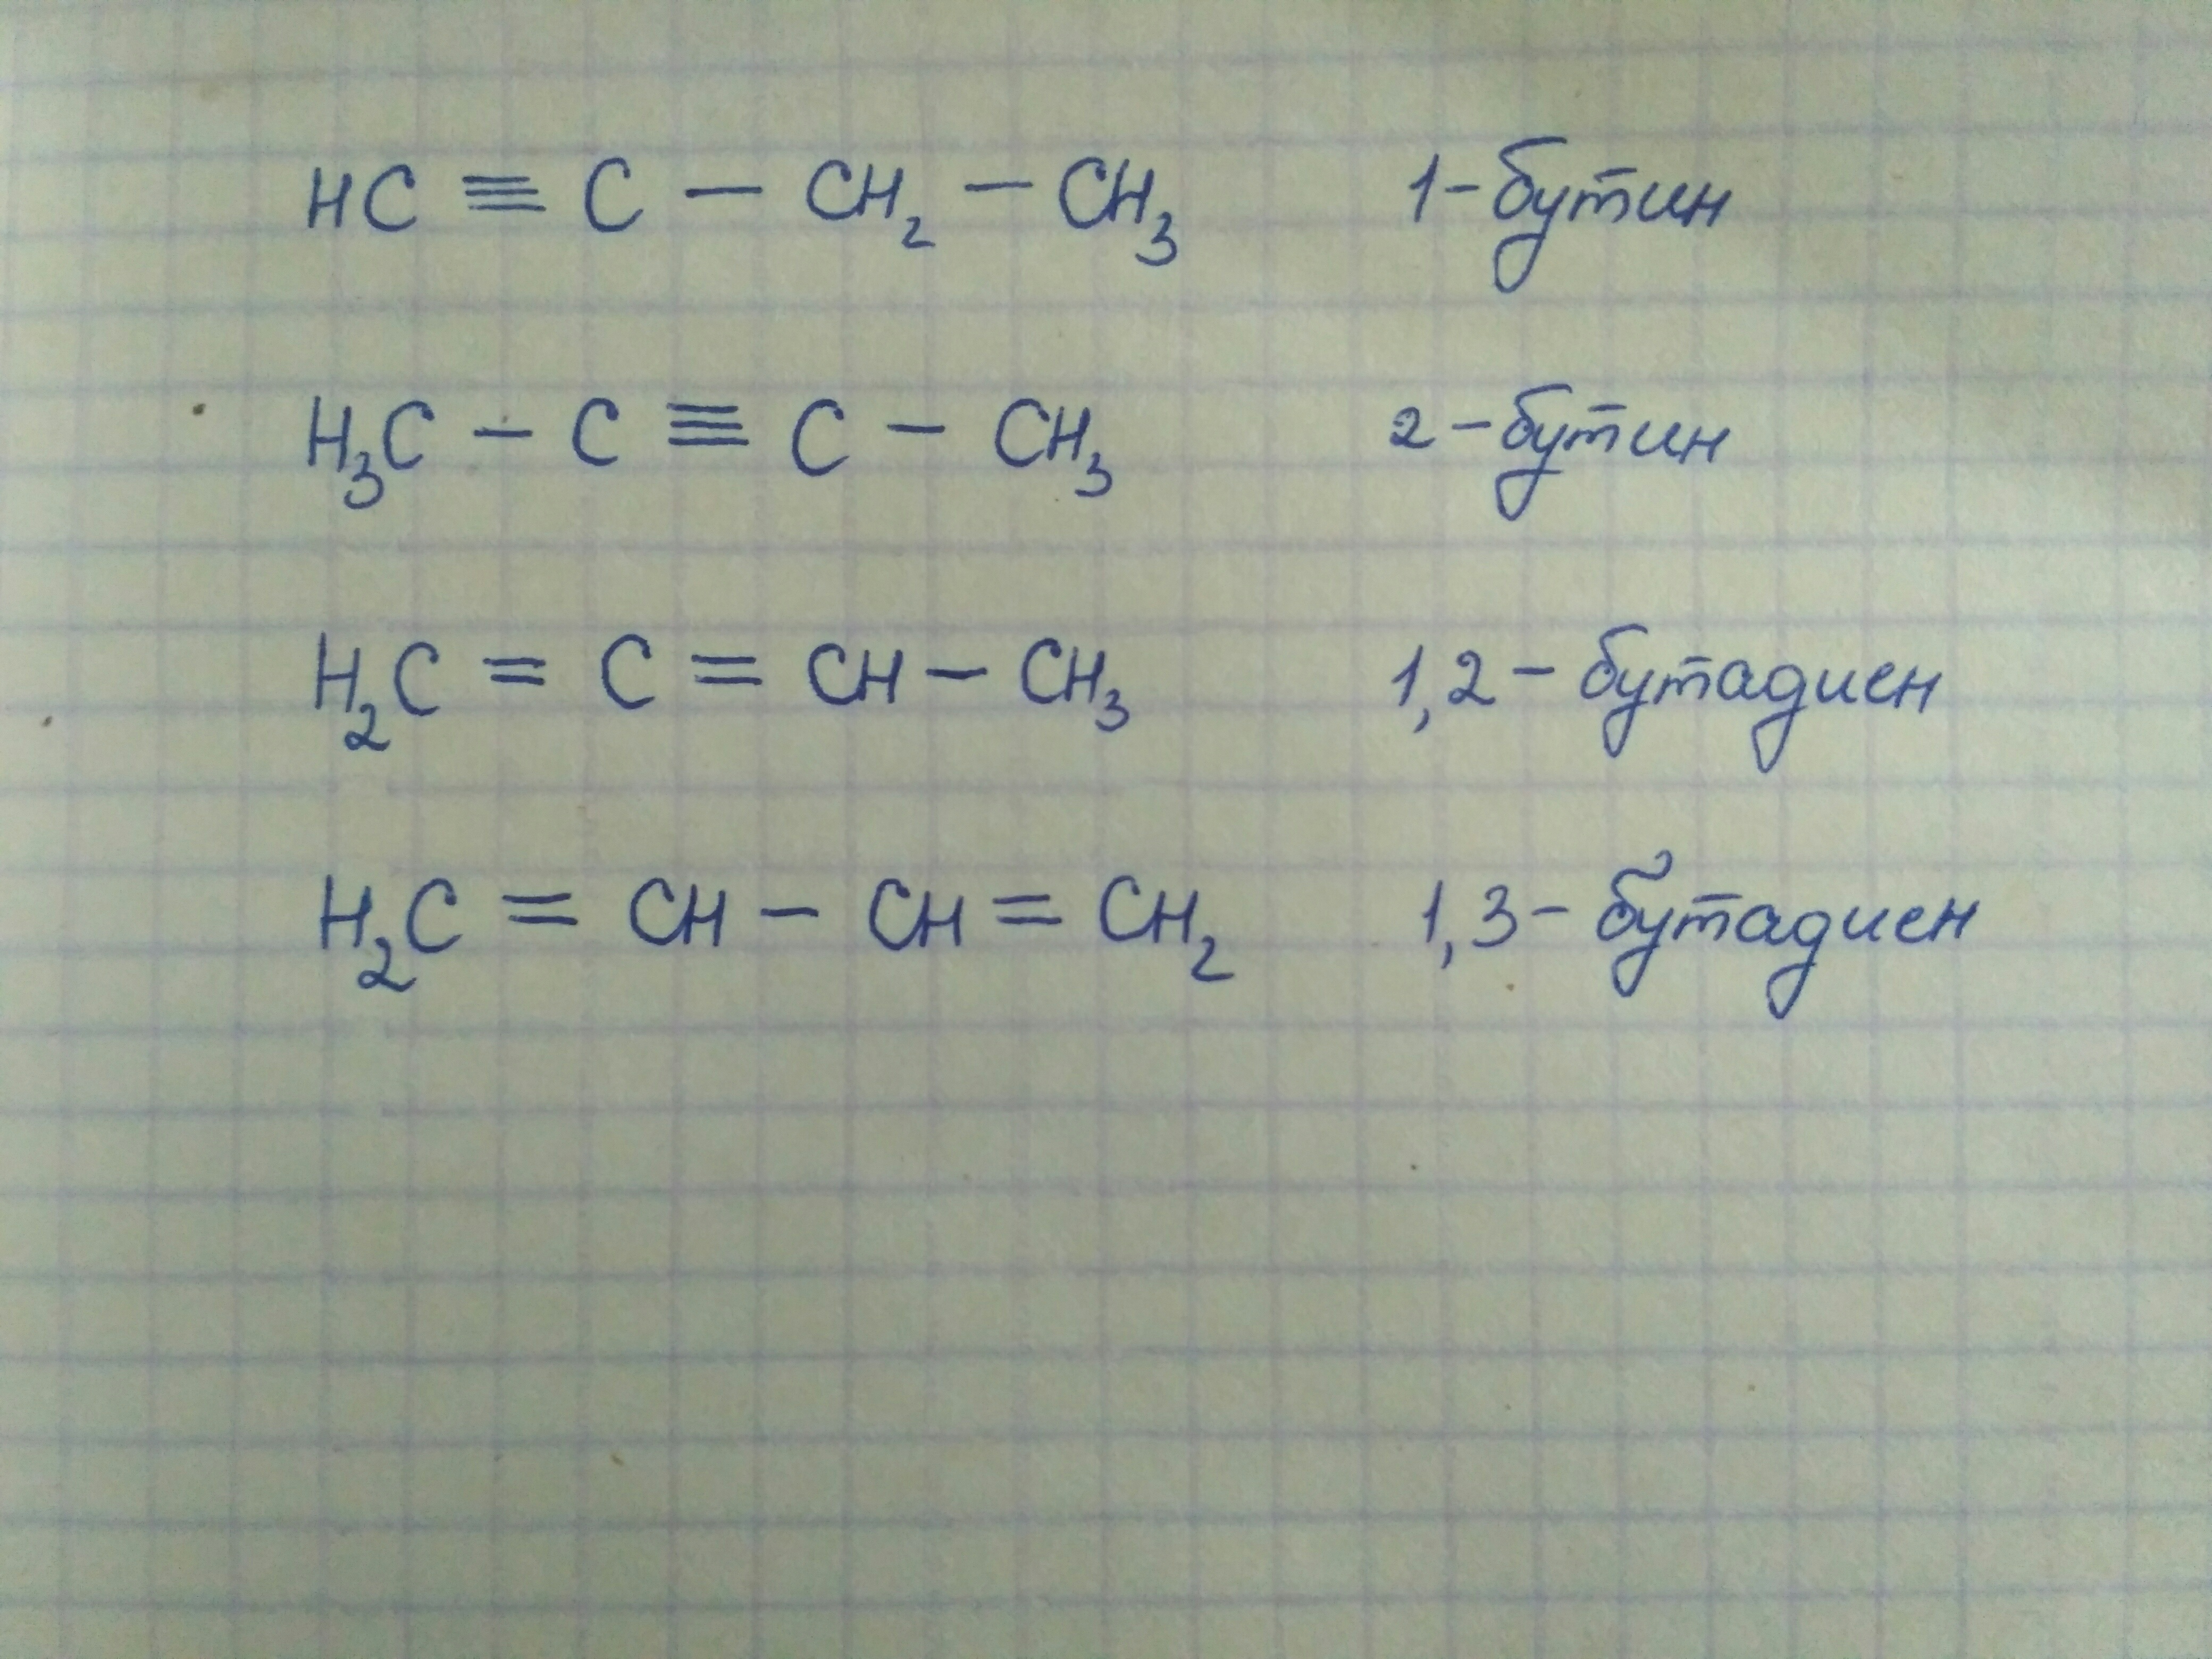 HC ≡ C — CH₂ — CH₃ 1-бутин
H₃C — C ≡ C — CH₃ 2-бутин
H₂C = C = CH — CH₃ 1,2-бутадиен
H₂C = CH — CH = CH₂ 1,3-бутадиен